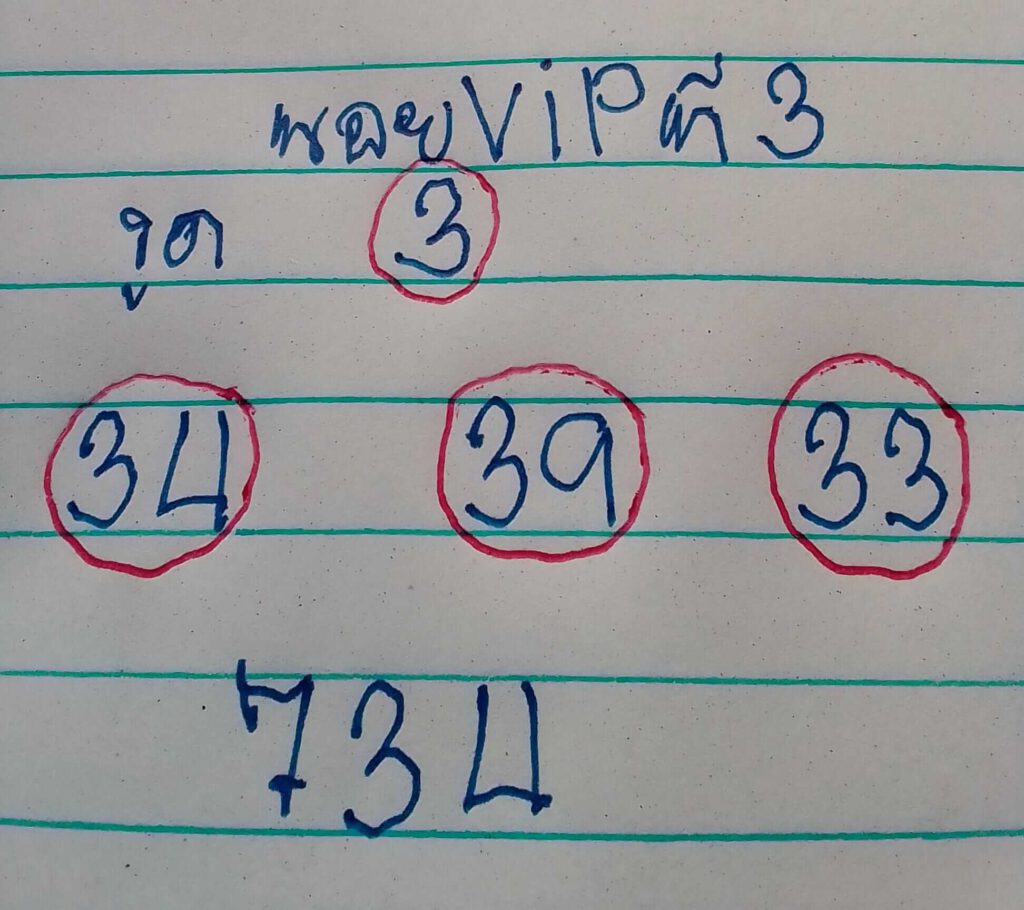 นอย ViP ที่ 3
รูด 3
34 39 33
734